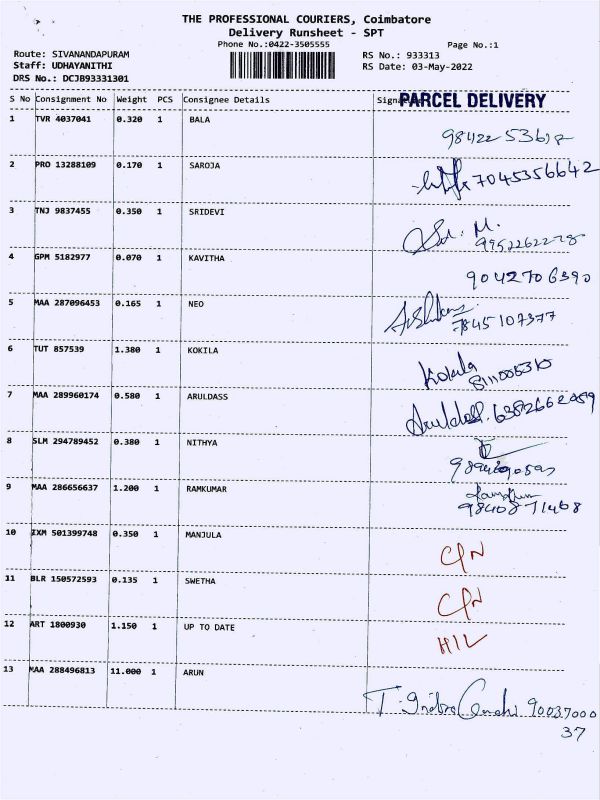 THE PROFESSIONAL COURIERS, Coimbatore
Delivery Runsheet - SPT
Phone No.:0422-3505555
Page No.:1
Route: SIVANANDAPURAM
RS No.: 933313
Staff: UDHAYANITHI
RS Date: 03-May-2022
DRS No.: DCJB93331301
S No Consignment No Weight PCS Consignee Details PARCEL DELIVERY
1 TVR 4037041 0.320 1 BALA
2 PRO 13288109 0.170 1 SAROJA 7045356642
3 TNJ 9837455 0.350 1 SRIDEVI
M.
9952262278
4 GPM 5182977 0.070 1 KAVITHA
9042706390
5 MAA 287096453 0.165 1 NEO
7845107377
6 TUT 857539 1.380 1 KOKILA
Kokila
7 MAA 289960174 0.580 1 ARULDASS
Aruldass. 6382662059
8 SLM 294789452 0.380 1 NITHYA
9 MAA 286656637 1.200 1 RAMKUMAR
9840871468
10 IXM 501399748 0.350 1 MANJULA
11 BLR 150572593 0.135 1 SWETHA
12 ART 1800930 1.150 1 UP TO DATE
13 MAA 288496813 11.000 1 ARUN
90037000
37